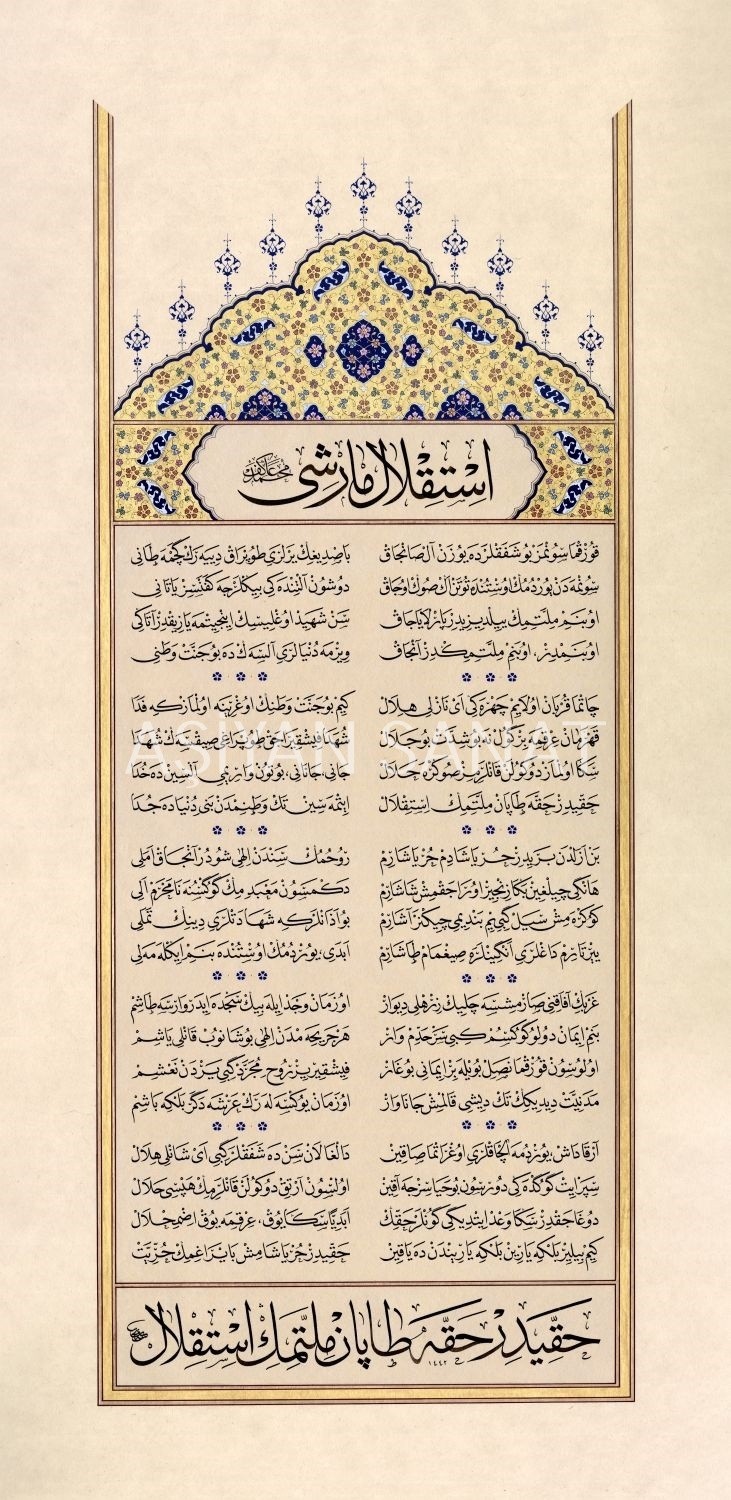 استقلال مارشى
محمد عاكف
قورقما سونمز بو شفقلرده يوزن آل صانجاق
سونمه‌دن يوردمك اوستنده توتن اك صوك اوجاق
او بنم ملتمك ييلديزيدر پارلاياجاق
او بنمدر، او بنم ملتمكدر آنجاق
چاتما قربان اولايم چهره‌كى اى نازلى هلال
قهرمان عرقمه بر گول نه بو شدت بو جلال
سكا اولماز دوكولن قانلرمز صوكره حلال
حقيدر حقه طاپان ملتمك استقلال
بن ازلدن بريدر حر ياشادم حر ياشارم
هانكى چيلغين بكا زنجير اوراجقمش شاشارم
كوكره‌مش سيل كبى‌يم بنديمى چيكنر آشارم
ييرتارم داغلرى انگينلره صيغمام طاشارم
غربك آفاقنى صارمشسه چليك زرهلى ديوار
بنم ايمان دولو كوكسم كبى سرحدم وار
اولوسون قورقما ناصل بويله بر ايمانى بوغار
مدنيت ديديكك تك ديشى قالمش جاناوار
آرقاداش، يوردمه آلچاقلرى اوغراتما صاقين
سپر ايت كوكده‌كى دورسون بو حياسزجه آقين
دوغاجقدر سكا وعد ايتديكى كونلر حقك
كيم بيلير بلكه يارين بلكه ياريندن ده ياقين
باصديغك يرلرى طوپراق دييه‌رك گچمه طانى
دوشون آلتنده‌كى بيكلرجه كفنسز ياتانى
سن شهيد اوغليسك اينجيتمه يازيقدر آتاكى
ويرمه دنيالرى آلسه‌ك ده بو جنت وطنى
كيم بو جنت وطنك اوغرينه اولمازكه فدا
شهدا فيشقيراجق طوپراغى صيقسه‌ك شهدا
جانى، جانانى، بوتون واريمى آلسين ده خدا
ايتمه‌سين تك وطنمدن بنى دنياده جدا
روحمك سندن الهى شودر آنجاق املى
دكمسون معبدمك كوكسنه نامحرم الى
بو اذانلركه شهادتلرى دينك تملى
ابدى، يوردمك اوستنده بنم ايكله‌مه‌لى
او زمان وجد ايله بيك سجده ايدر وارسه طاشم
هر جريحه‌مدن الهى بوشانوب قانلى ياشم
فيشقيرير روح مجرد كبى يردن نعشم
او زمان يوكسه‌له‌رك عرشه دكر بلكه باشم
دالغالان سن ده شفقلر كبى اى شانلى هلال
اولسون آرتق دوكولن قانلرمك هپسى حلال
ابديا سكا يوق، عرقمه يوق اضمحلال
حقيدر حر ياشامش بايراغمك حريت
حقيدر حقه طاپان ملتمك استقلال
١٤٤٢
AŞİYAN SANAT